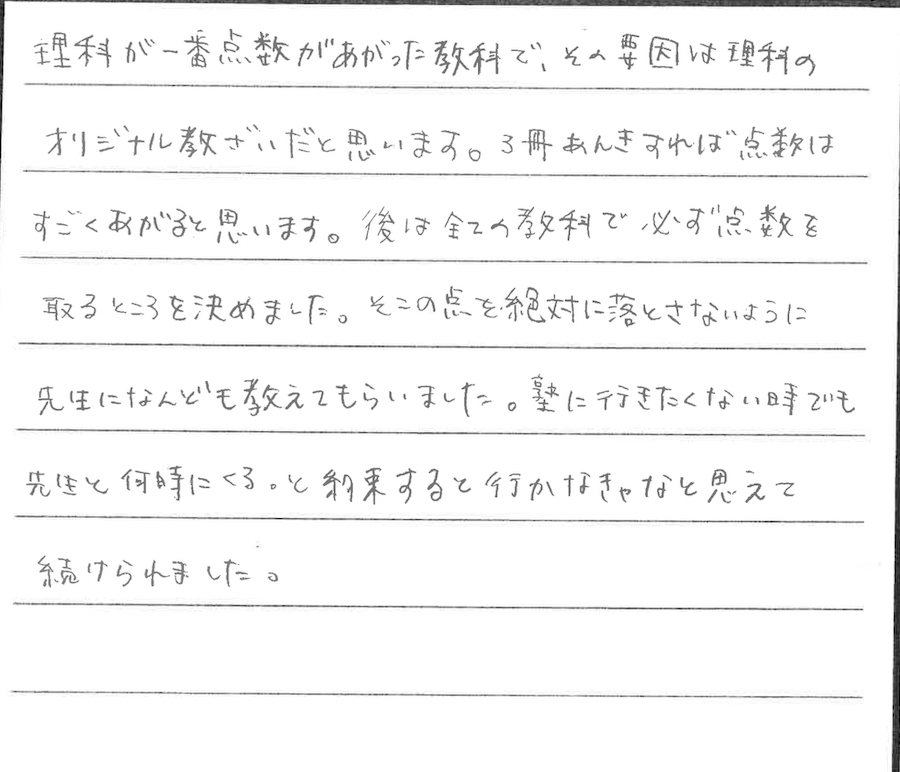 理科が一番点数があがった教科で、その要因は理科の
オリジナル教ざいだと思います。3冊あんきすれば点数は
すごくあがると思います。後は全ての教科で必ず点数を
取るところを決めました。そこの点を絶対に落とさないように
先生になんども教えてもらいました。塾に行きたくない時でも
先生と何時にくる。と約束すると行かなきゃなと思えて
続けられました。